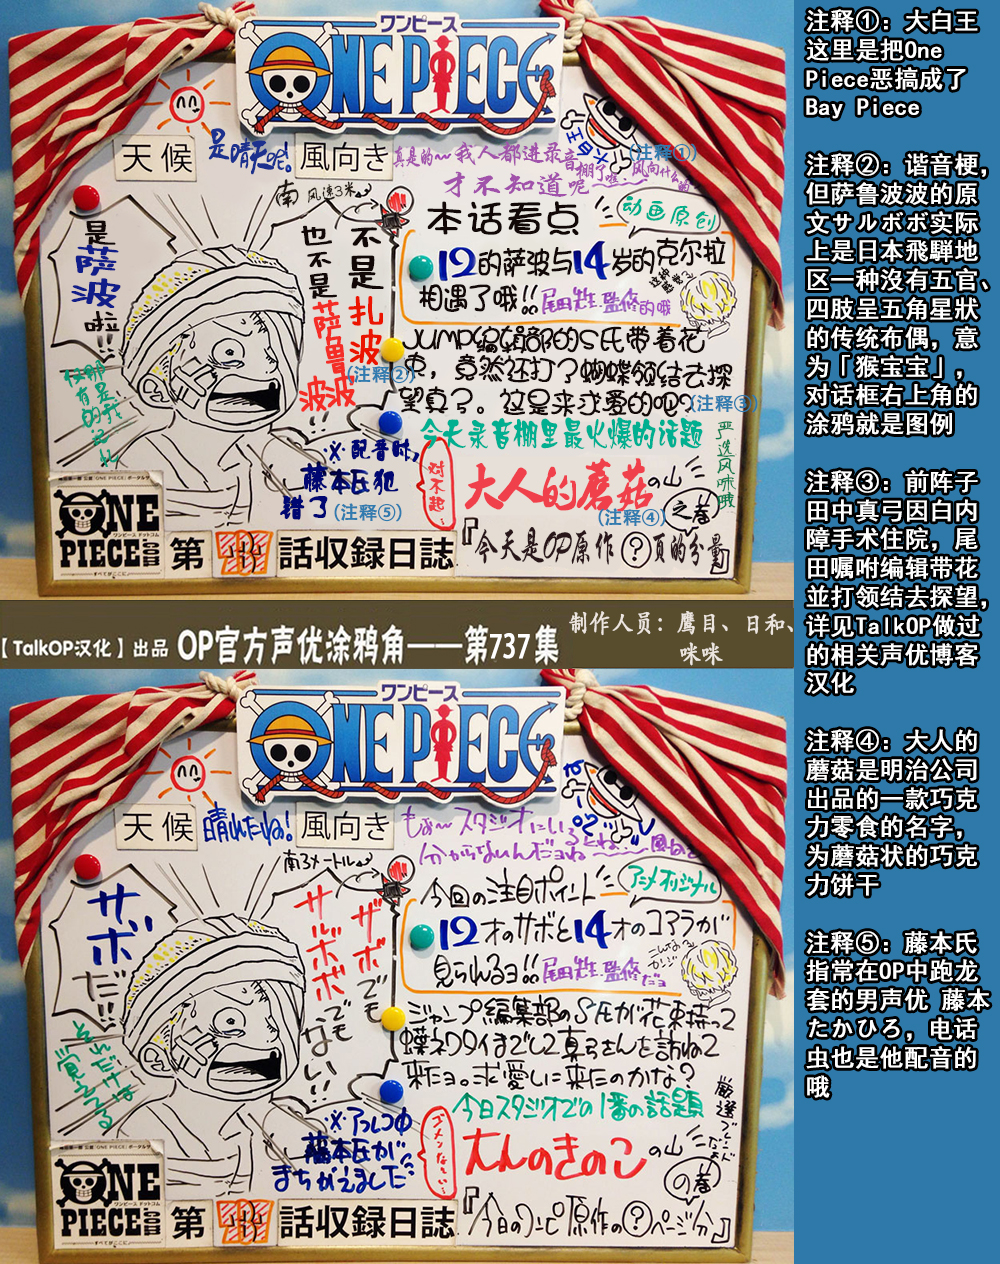 ワンピース
ONE PIECE
天候
是晴天呢!
風向き
真是的~我人都进录音棚了啦
才不知道呢~
风向什么的
大白王
(注释①)
南 风速3米
是萨波啦!!
不是扎波
也不是萨鲁波波
(注释②)
本话看点
动画原创
12的萨波与14岁的克尔拉
相遇了哦!!尾田先生监修的哦
JUMP编辑部的S氏带着花
束,竟然还打了蝴蝶领结去探
望真弓。这是来求爱的吧?(注释③)
今天录音棚里最火爆的话题
严选风味哦
※配音时,
藤本氏犯
错了(注释⑤)
对不起…
大人的蘑菇の山
(注释④)
之巻
『今天是OP原作?页的分量』
ONE
PIECE.COM
ワンピース ドットコム
―すべてがここに―
第
話収録日誌
【TalkOP汉化】出品 OP官方声优涂鸦角——第737集
制作人员:鹰目、日和、
咪咪
ワンピース
ONE PIECE
天候
晴れたね!
風向き
もぉ~スタジオにいるとね
分からないんだョね~
南3メートル
サボだ!!
ザボでも
サルボボでもない!!
それだけは
覚えてる
今回の注目ポイント
アニメオリジナル
12才のサボと14才のコアラが
見られるョ!!尾田先生監修だョ
こんなるかンジ
ジャンプ編集部のS氏が花束持って
蝶ネクタイまでして真弓さんを訪ねて
来たョ。求愛しに来たのかな?
今日スタジオでの1番の話題
※アフレコ中
藤本氏が
まちがえました
ゴメンなさい…
大人のきのこの山
の巻
『今日のワンピ原作の?ページ分』
ONE
PIECE.COM
ワンピース ドットコム
―すべてがここに―
第
話収録日誌
注释①:大白王
这里是把One
Piece恶搞成了
Bay Piece
注释②:谐音梗,
但萨鲁波波的原
文サルボボ实际
上是日本飛騨地
区一种沒有五官、
四肢呈五角星狀
的传统布偶,意
为「猴宝宝」,
对话框右上角的
涂鸦就是图例
注释③:前阵子
田中真弓因白内
障手术住院,尾
田嘱咐编辑带花
並打领结去探望,
详见TalkOP做过
的相关声优博客
汉化
注释④:大人的
蘑菇是明治公司
出品的一款巧克
力零食的名字,
为蘑菇状的巧克
力饼干
注释⑤:藤本氏
指常在OP中跑龙
套的男声优 藤本
たかひろ,电话
虫也是他配音的
哦